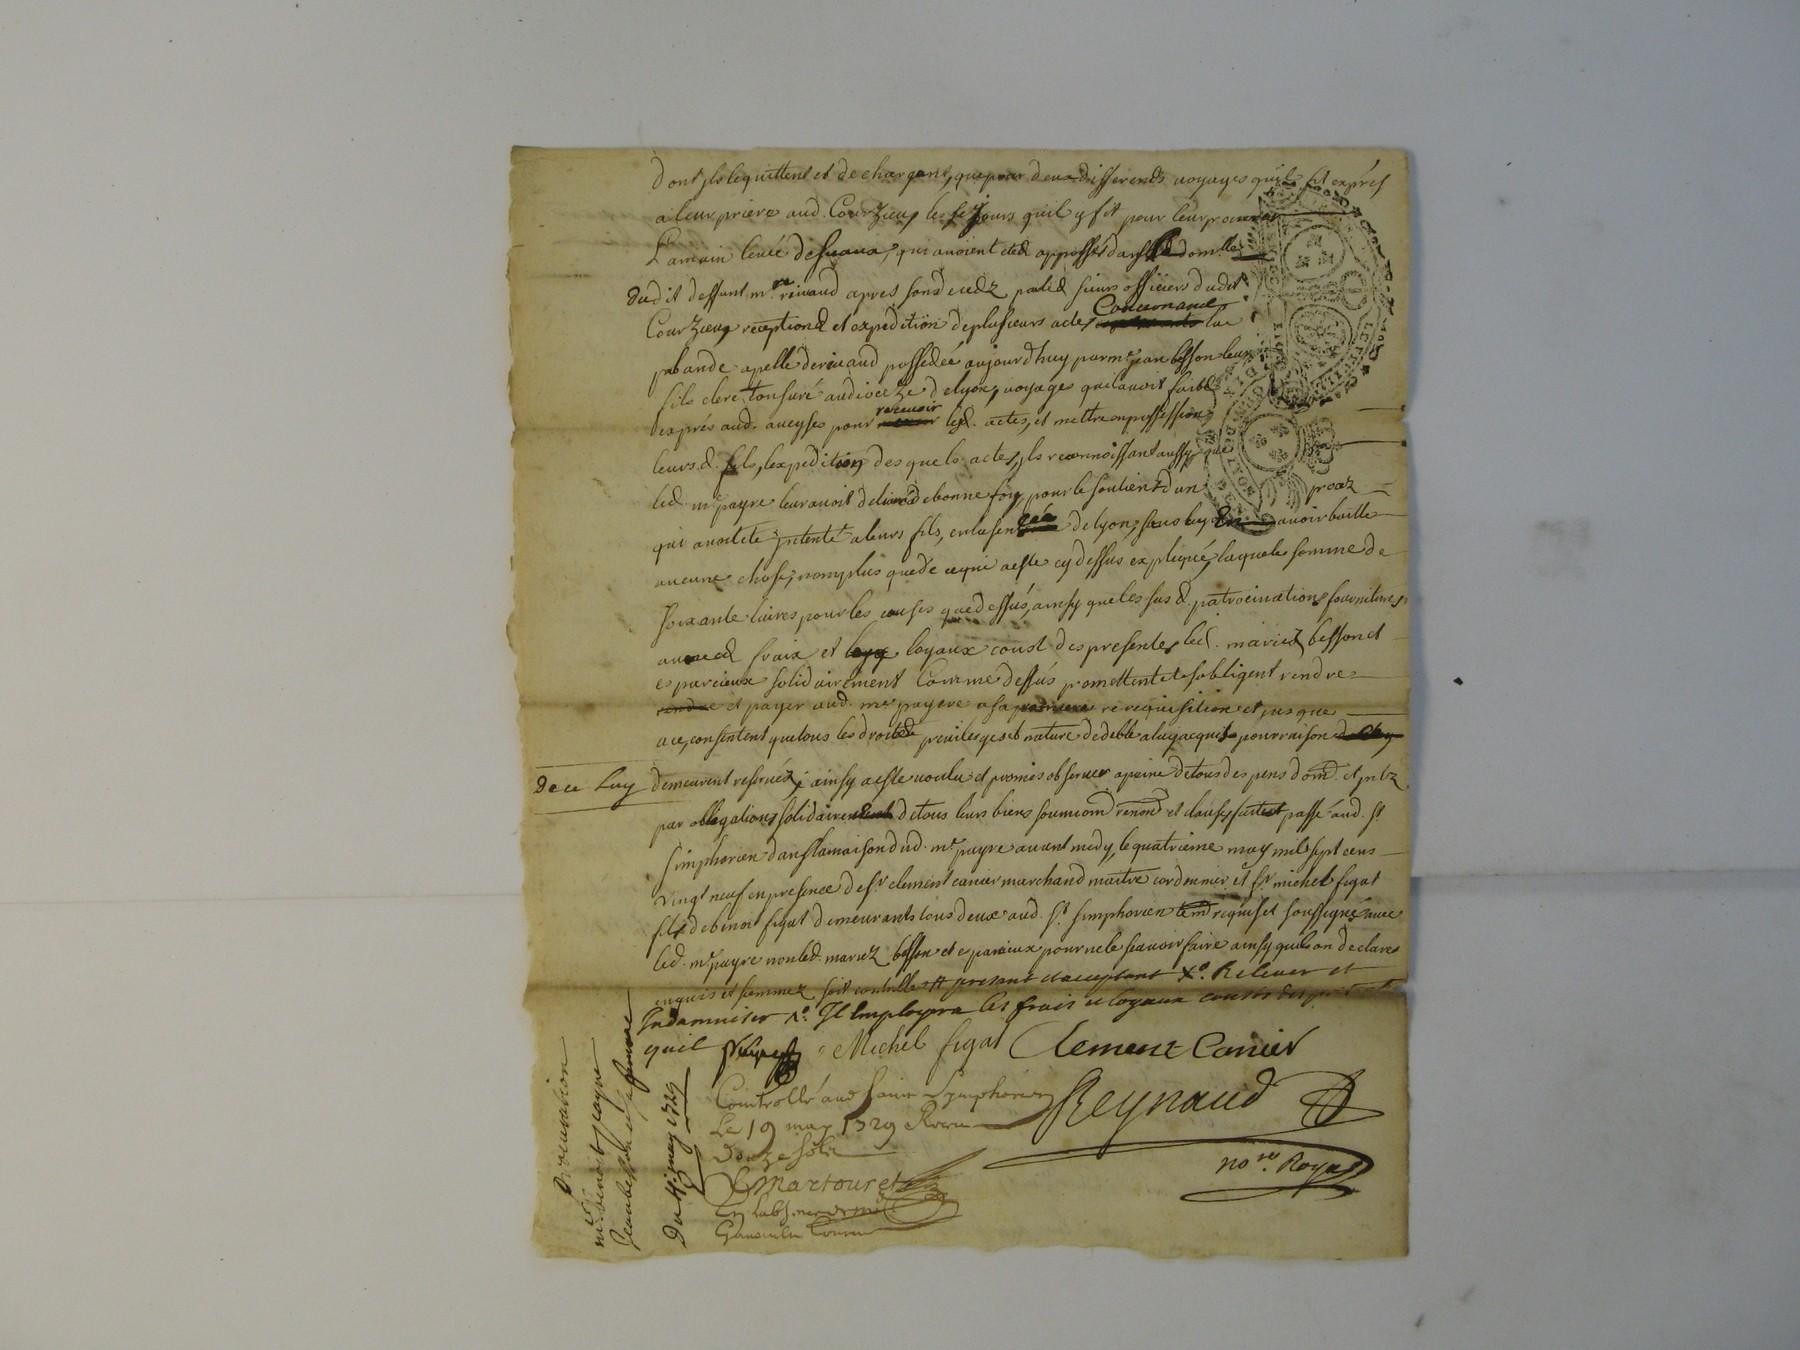 dont ils le quittent et dechargent, que pour deux differends voyages quil fit exprés
a leur priere aud. Courzieu, les sejours quil y fit pour leur procurer
Lamain levée desceaux, qui avoient etéd apposséd dans led dom.lle
dudit deffunt mr. reinaud apres son decedz par led sieurs officiers dudt
Courzieu, receptiond et expedition de plusieurs actes Concernand la
prebande apellé dereinaud possedeé aujourdhuy par mre jean besson leur
fils clerc tonsuré audioceze de lyon, voyage quil avoit fait
exprés aud. aveyses pour recevoir lesd. actes, et mettre en possession
leursd. fils, lexpedition des quels actes, ils reconnoissant aussy que
led. mr payre leur avoit delivré de bonne foy, pour le soutient dun procz
qui avoit eté intenté a leurs fils, en la senceé de lyon, sans luy en avoir baillé
aucune chose, nomplus que de ce qui aeste cy dessus expliqué, laquele somme de
soixante livres pour les causes que dessus, ainsy que les susd. patrocinations fournitures
avanced fraix et loyaux coust des presentes, led. mariez besson et
esparcieux solidairement Comme dessus promettent et sobligent rendre
et payer aud. mr payre a sa premiere requisition et jusque
ace, consentent que tous les droits privileges et nature de debte a luy acquis pour raison
de ce Luy demeurent reservéz, ainsy aeste voulu et promis observer apeine de tous despens dom. et intz
par obligations solidaire de tous leurs biens soumiond renond et clauses fait et passé aud. St.
simphorien dans la maison dud. mr payre avant midy, le quatrieme may mil sept cens
vingt neuf en presence de sr clement canier marchand maitre cordonnier et sr michel figat
fils de benoit figat demeurants tous deux aud. St. simphorien temd requis et soussignés avec
led. mr payre non led. mariez besson et esparcieux pour ne le scavoir faire ainsy quils on declarez
enquis et sommez soit controllé present et acceptant Xo. Relever et
Indamniser Xo. Il Employera les frais et loyaux cousts des
quil Payre Michel figat Clement Canier
Controllé aud Saint Symphorien
Le 19 may 1729 Recu
douze sols
Martouret
Reynaud
nore. Royal
procuration
mre benoit payre
Jean besson et sa femme
Du 4e may 1729